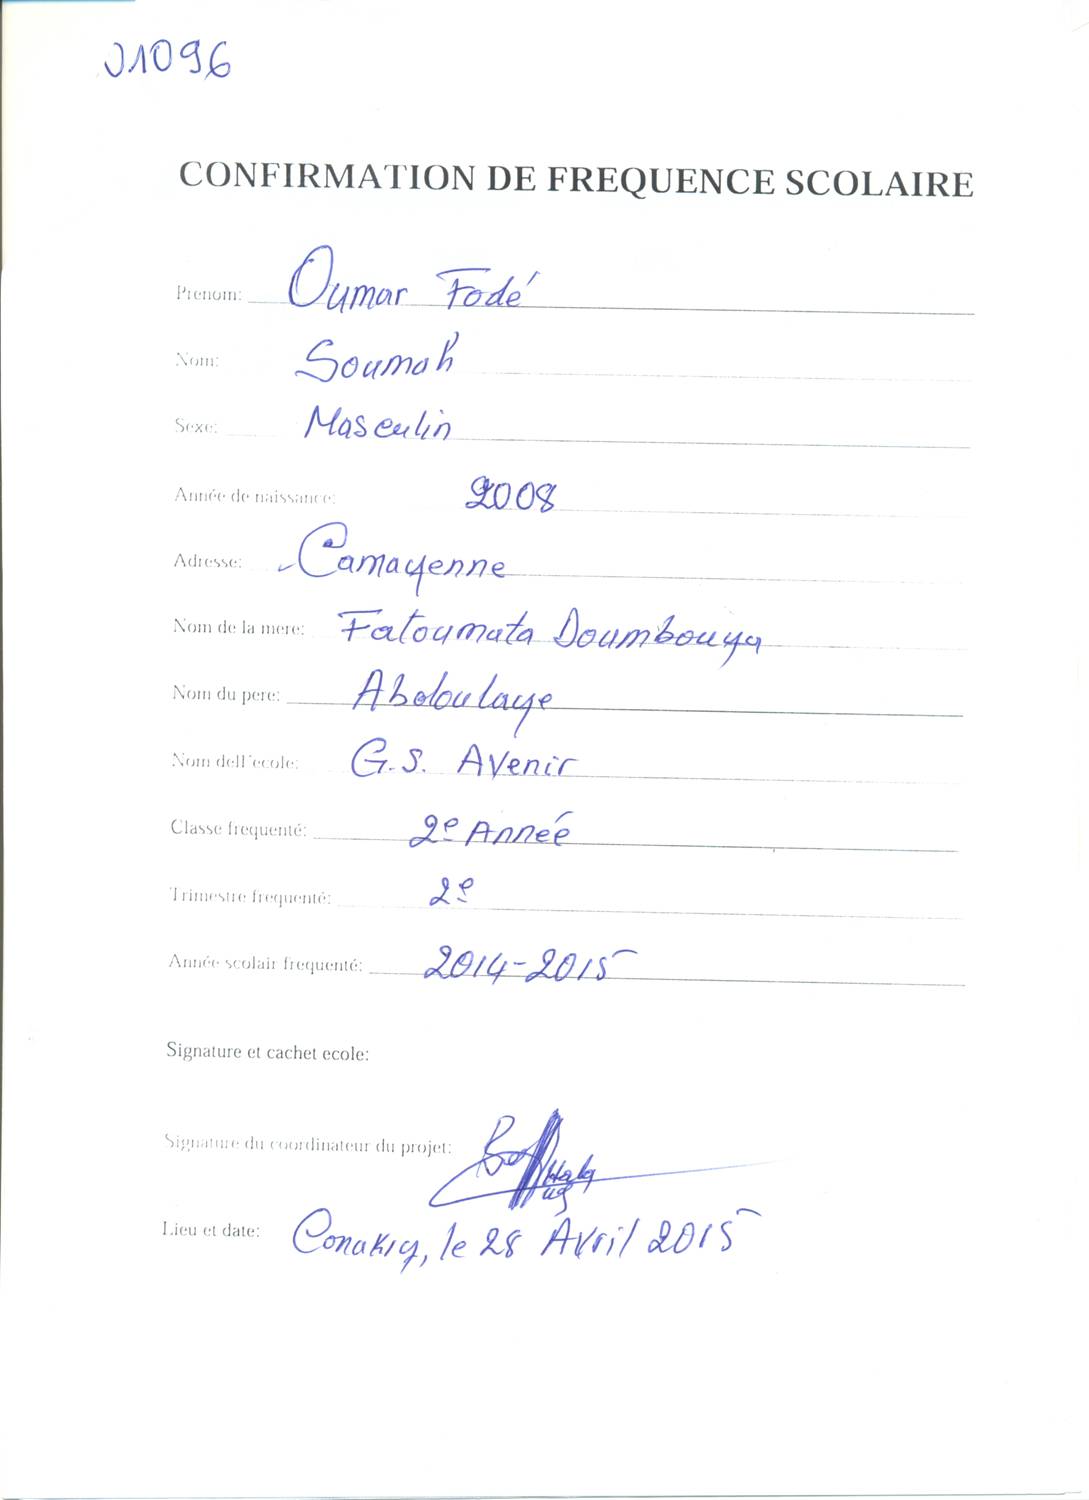 J1096
CONFIRMATION DE FREQUENCE SCOLAIRE
Prenom: Oumar Fodé
Nom: Soumah
Sexe: Masculin
Année de naissance: 2008
Adresse: Camayenne
Nom de la mere: Fatoumata Doumbouya
Nom du pere: Abdoulaye
Nom dell'ecole: G.S. Avenir
Classe frequenté: 2e Année
Trimestre frequenté: 2e
Année scolair frequenté: 2014-2015
Signature et cachet ecole:
Signature du coordinateur du projet:
Lieu et date: Conakry, le 28 Avril 2015